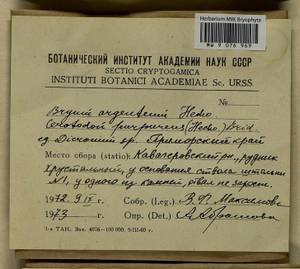 Herbarium MW, Bryophyte
MW 9 076 969
БОТАНИЧЕСКИЙ ИНСТИТУТ АКАДЕМИИ НАУК СССР
SECTIO CRYPTOGAMICA
INSTITUTI BOTANICI ACADEMIAE Sc. URSS.
№
Bryum argenteum Hedw.
Ceratodon purpureus (Hedw.) Brid.
Приморский край
Место сбора (statio): Кавалеровский рн, рудник
Хрустальный, у основания ствола штольни
№1, у одного из камней,
1972 9 IX г. Собр. (Leg.) В. Ф. Максимова
1973 Опр. (Det.) А. Абрамова
1-я ТАН. Зак. 4076—100 000.